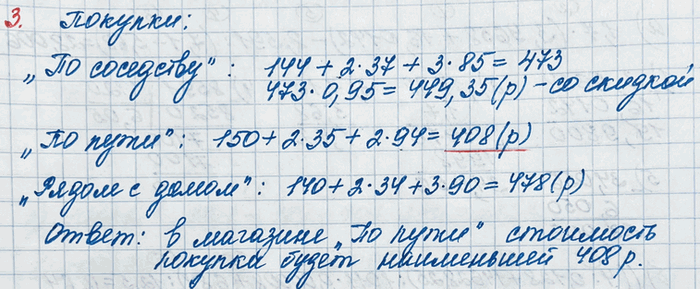 3. Покупки:
„По соседству“: 144 + 2·37 + 3·85 = 473
473·0,95 = 449,35(р) – со скидкой
„По пути“: 150 + 2·35 + 2·94 = 408(р)
„Рядом с домом“: 140 + 2·34 + 3·90 = 478(р)
Ответ: в магазине „По пути“ стоимость
покупка будет наименьшей 408 р.